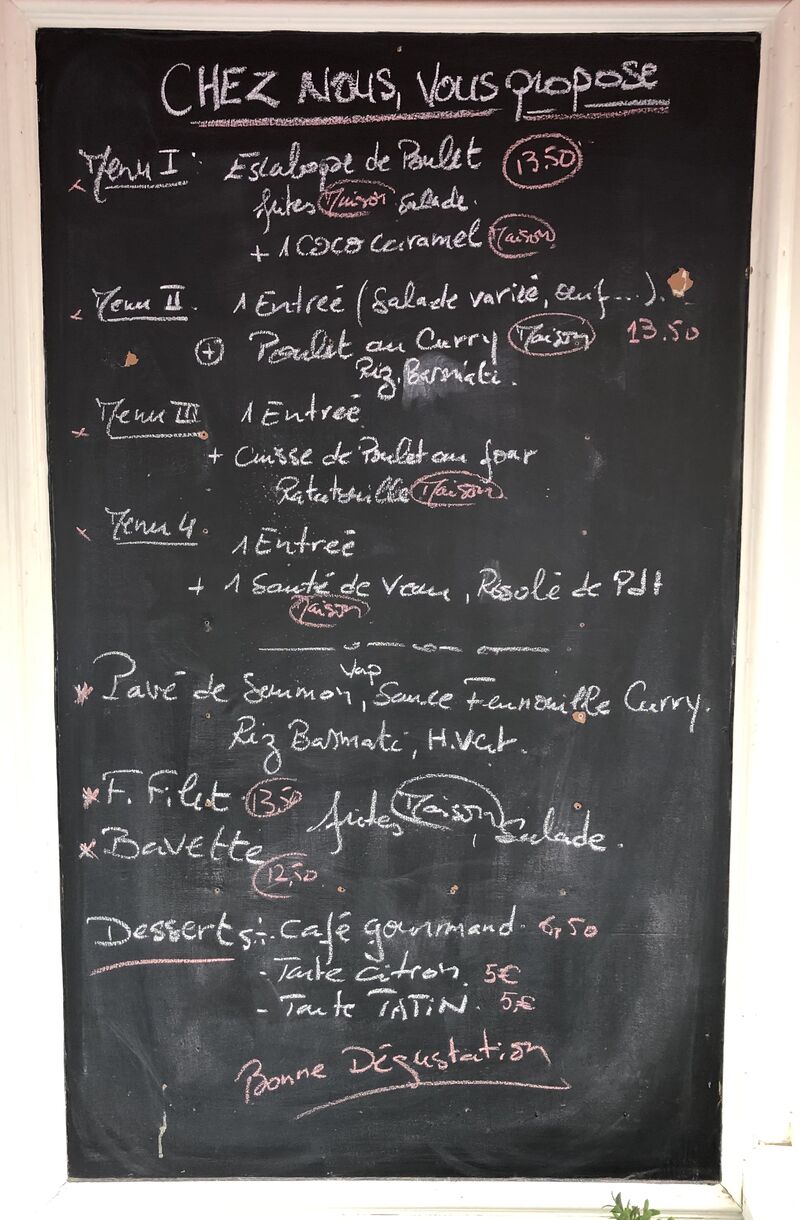 CHEZ NOUS, VOUS propose
Menu I: Escalope de Poulet 13.50
frites Maison Salade.
+ 1 COCO Caramel Maison
Menu II. 1 Entreé (Salade varieé, œuf....).
+ Poulet au Curry Maison 13.50
Riz. Basmati.
Menu III 1 Entreé
+ Cuisse de Poulet au four
Ratatouille Maison
Menu 4 1 Entreé
+ 1 Sauté de Veau, Rissolé de Pdt
Maison
Vap
* Pavé de Saumon, Sauce Fenouille Curry.
Riz Basmati, H.Vert.
* F. Filet 13.50 frites Maison, Salade.
* Bavette
12,50
Desserts: - Café gourmand. 6,50
- Tarte citron. 5€
- Tarte TATIN. 5,€
Bonne Dégustation